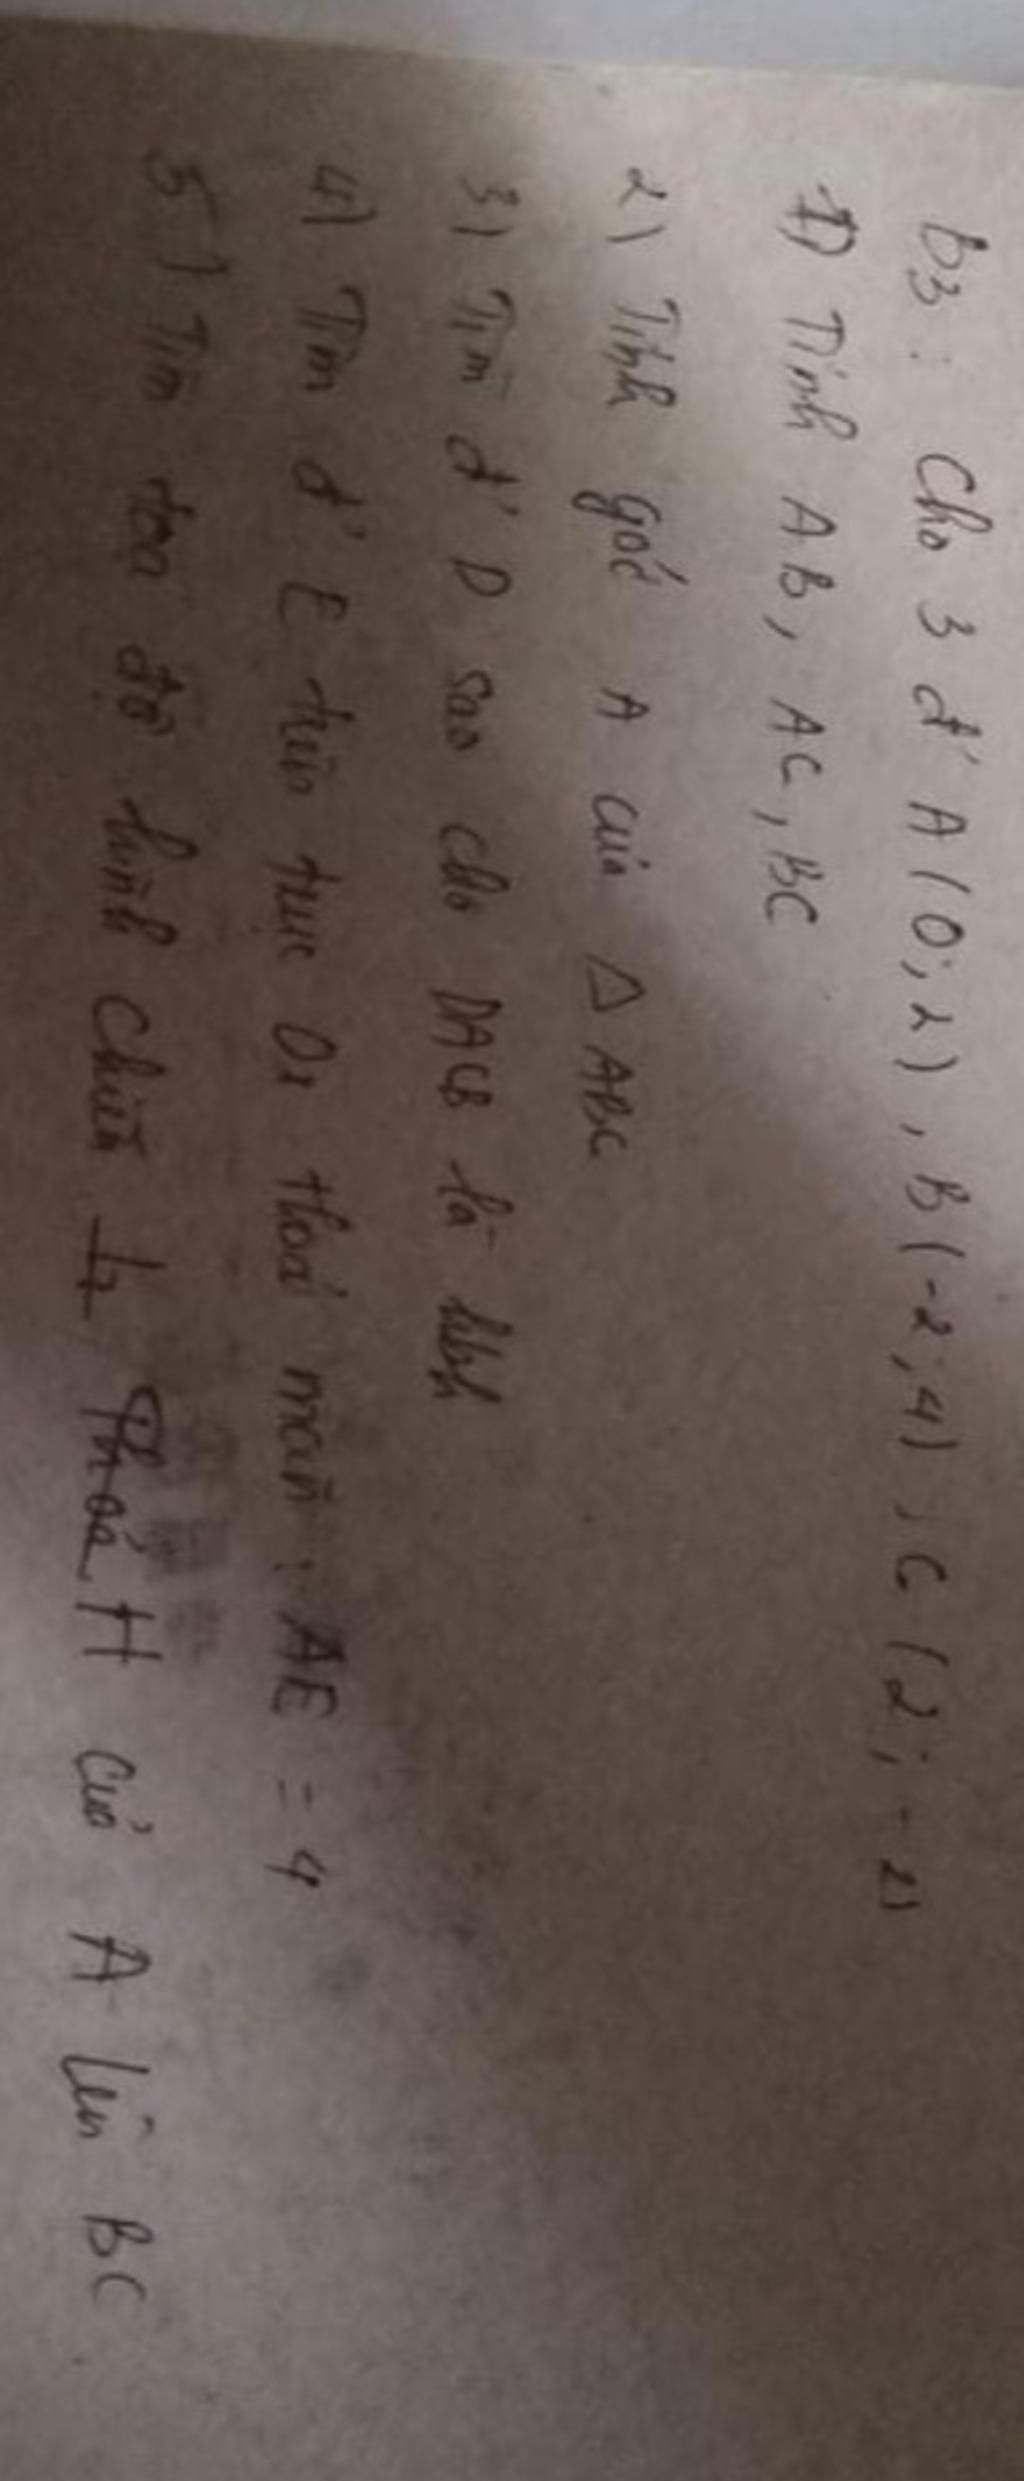 B3: Cho 3 đ' A(0;2), B(-2;4), C(2;-2)
1) Tính AB, AC, BC
2) Tính góc A của Δ ABC
3) Tìm đ' D sao cho DACB là hbh
4) Tìm đ' E trên trục Ox thoả mãn: AE = 4
5) Tìm toạ độ hình chiếu ⊥ H của A lên BC